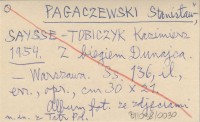 PAGACZEWSKI Stanisław,
SAYSSE-TOBICZYK Kazimierz
1954. Z biegiem Dunajca.
— Warszawa. Ss. 136, il.,
err., opr., cm 30 x 21.
Album fot. ze zdjęciami
m. in. z Tatr Pol.